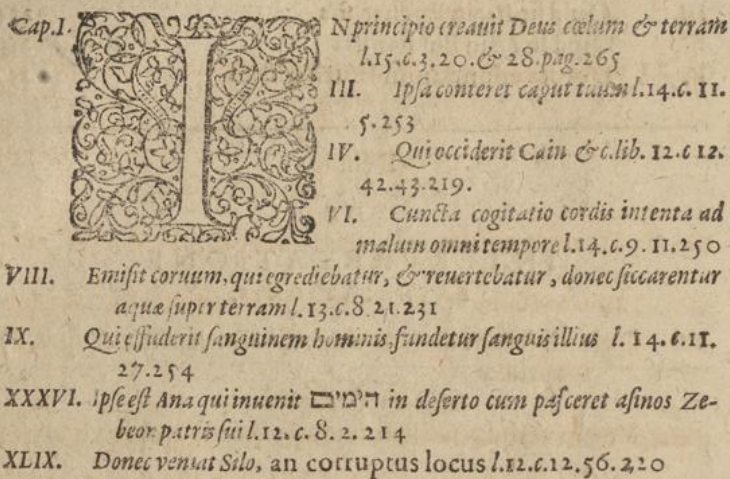 Cap.1. IN principio creauit Deus cœlum & terram
l.15.c.3.20.& 28.pag.265
III. Ipſa conteret caput tuum l.14.c.11.
5.253
IV. Qui occiderit Cain &c.lib.12.c 12.
42.43.219.
VI. Cuncta cogitatio cordis intenta ad
malum omni tempore l.14.c.9.11.250
VIII. Emiſit coruum, qui egrediebatur, & reuertebatur, donec ſiccarentur
aquæ ſuper terram l.13.c.8 21.231
IX. Qui effuderit ſanguinem hominis, fundetur ſanguis illius l.14.c.11.
27.254
XXXVI. Ipſe eſt Ana qui inuenit הימים in deſerto cum paſceret aſinos Ze-
beon patris ſui l.12.c.8.2.214
XLIX. Donec veniat Silo, an corruptus locus l.12.c.12.56.220